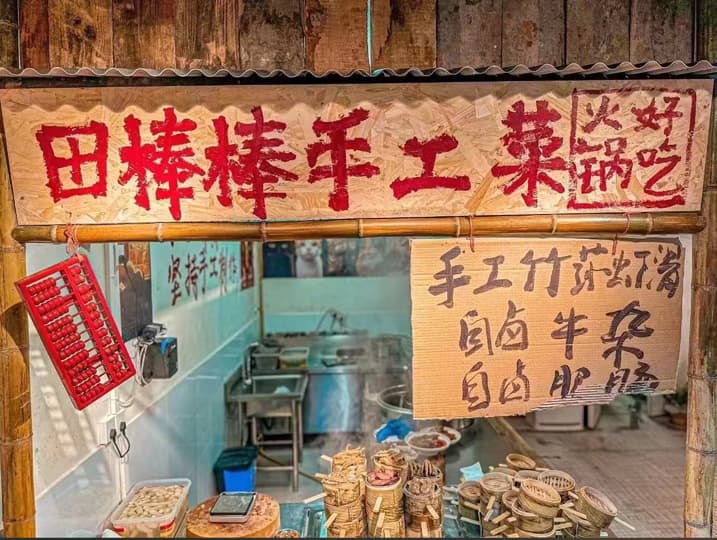 田棒棒手工菜
火锅
好吃
坚持手工制作
手工竹荪虾滑
自卤牛杂
自卤肥肠